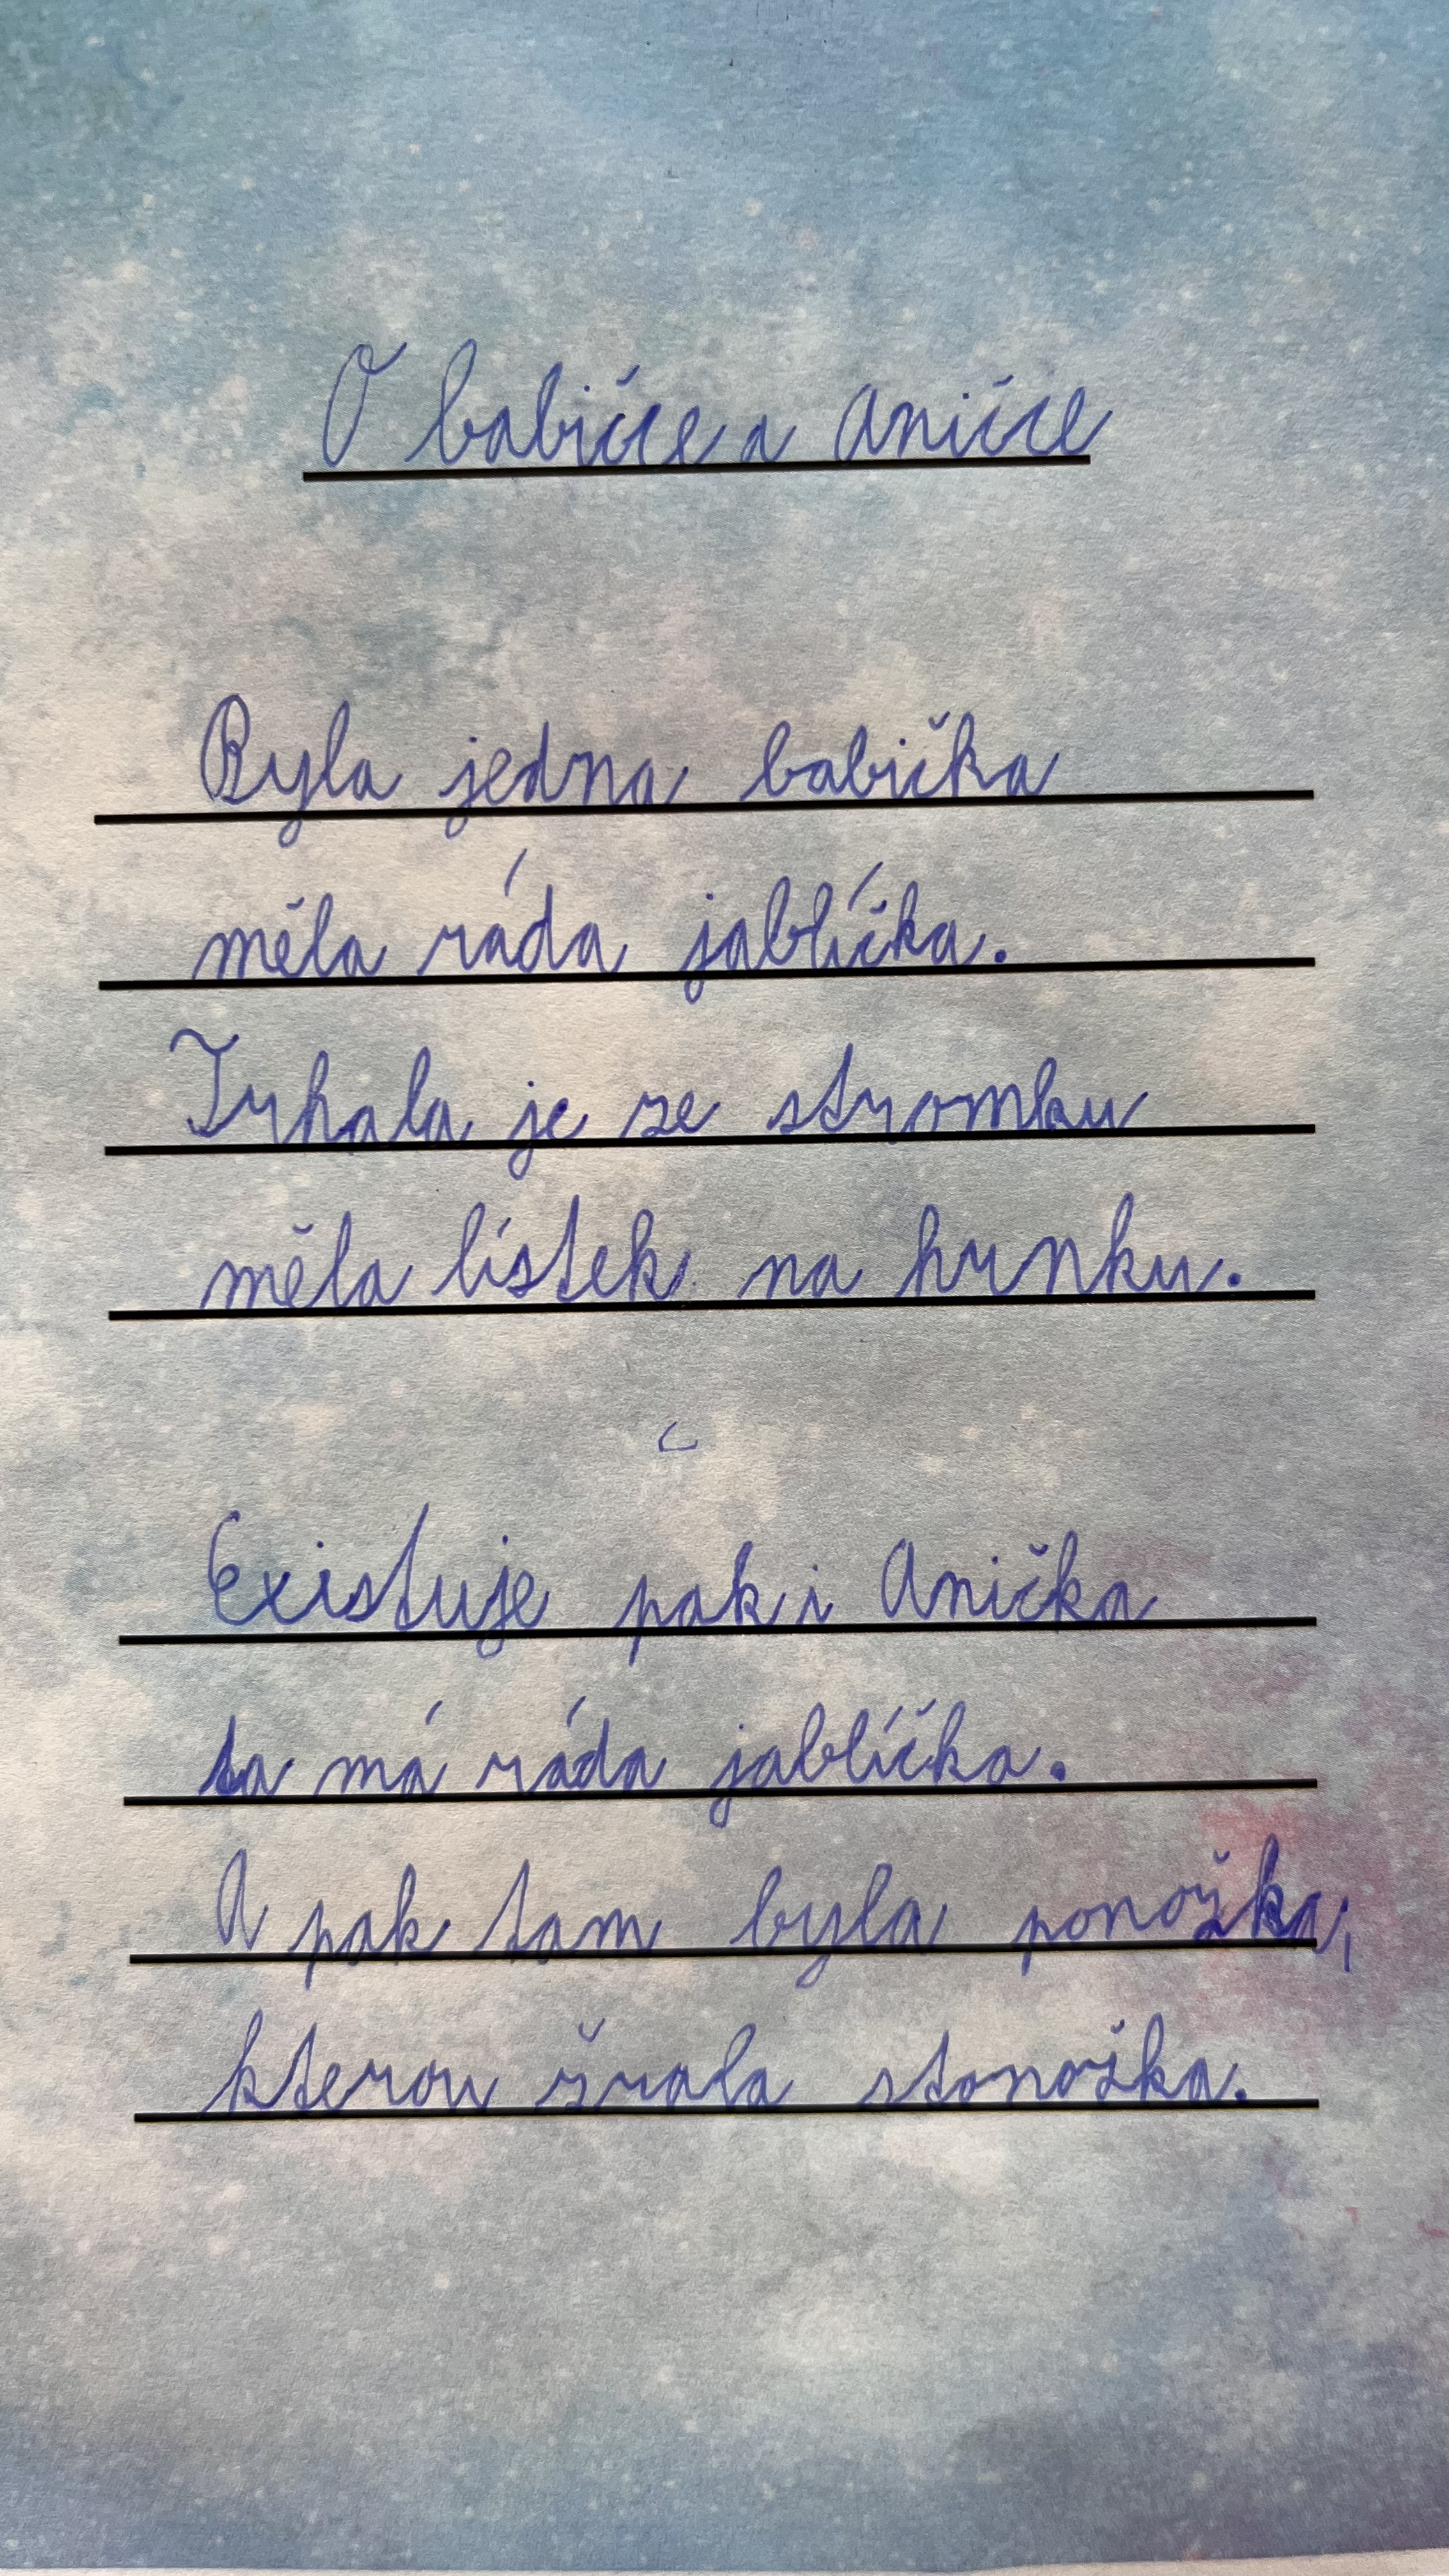 O babičce a Aničce
Byla jedna babička
měla ráda jablíčka.
Trhala je ze stromku
měla lístek na hrnku.
Existuje pak i Anička
ta má ráda jablíčka.
A pak tam byla ponožka,
kterou žrala stonožka.